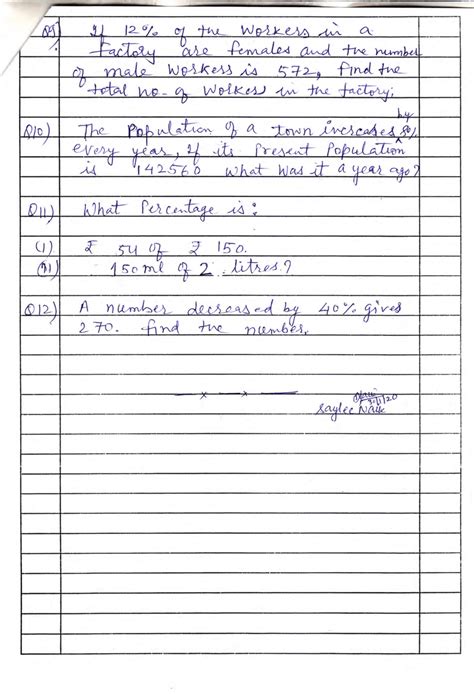 Q9) If 12% of the workers in a
factory are females and the number
of male workers is 572, find the
total no. of workers in the factory.
by
Q10) The Population of a town increases 8%
every year, If its Present Population
is 142560 what was it a year ago?
Q11) What Percentage is :
(i) ₹ 54 of ₹ 150.
(ii) 150ml of 2 litres?
Q12) A number decreased by 40% gives
270. find the number.
— x — x —
31/1/20
Saylee Naik